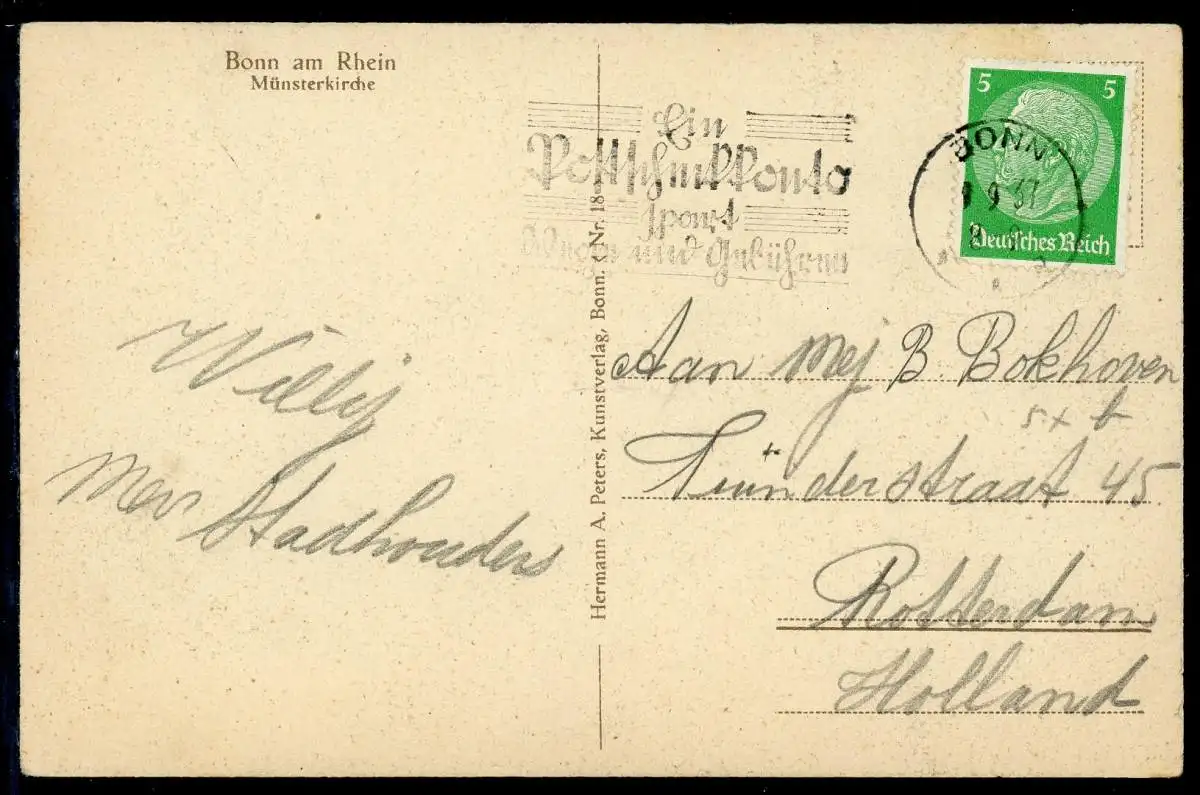 Bonn am Rhein
Münsterkirche
Ein
Postscheckkonto
spart
Wege und Gebühren
5 5
Deutsches Reich
BONN
9 37
Hermann A. Peters, Kunstverlag, Bonn. Nr. 18
Willij
Mev Stadhouders
Aan Mej B. Bokhoven
straat 45
Rotterdam
Holland